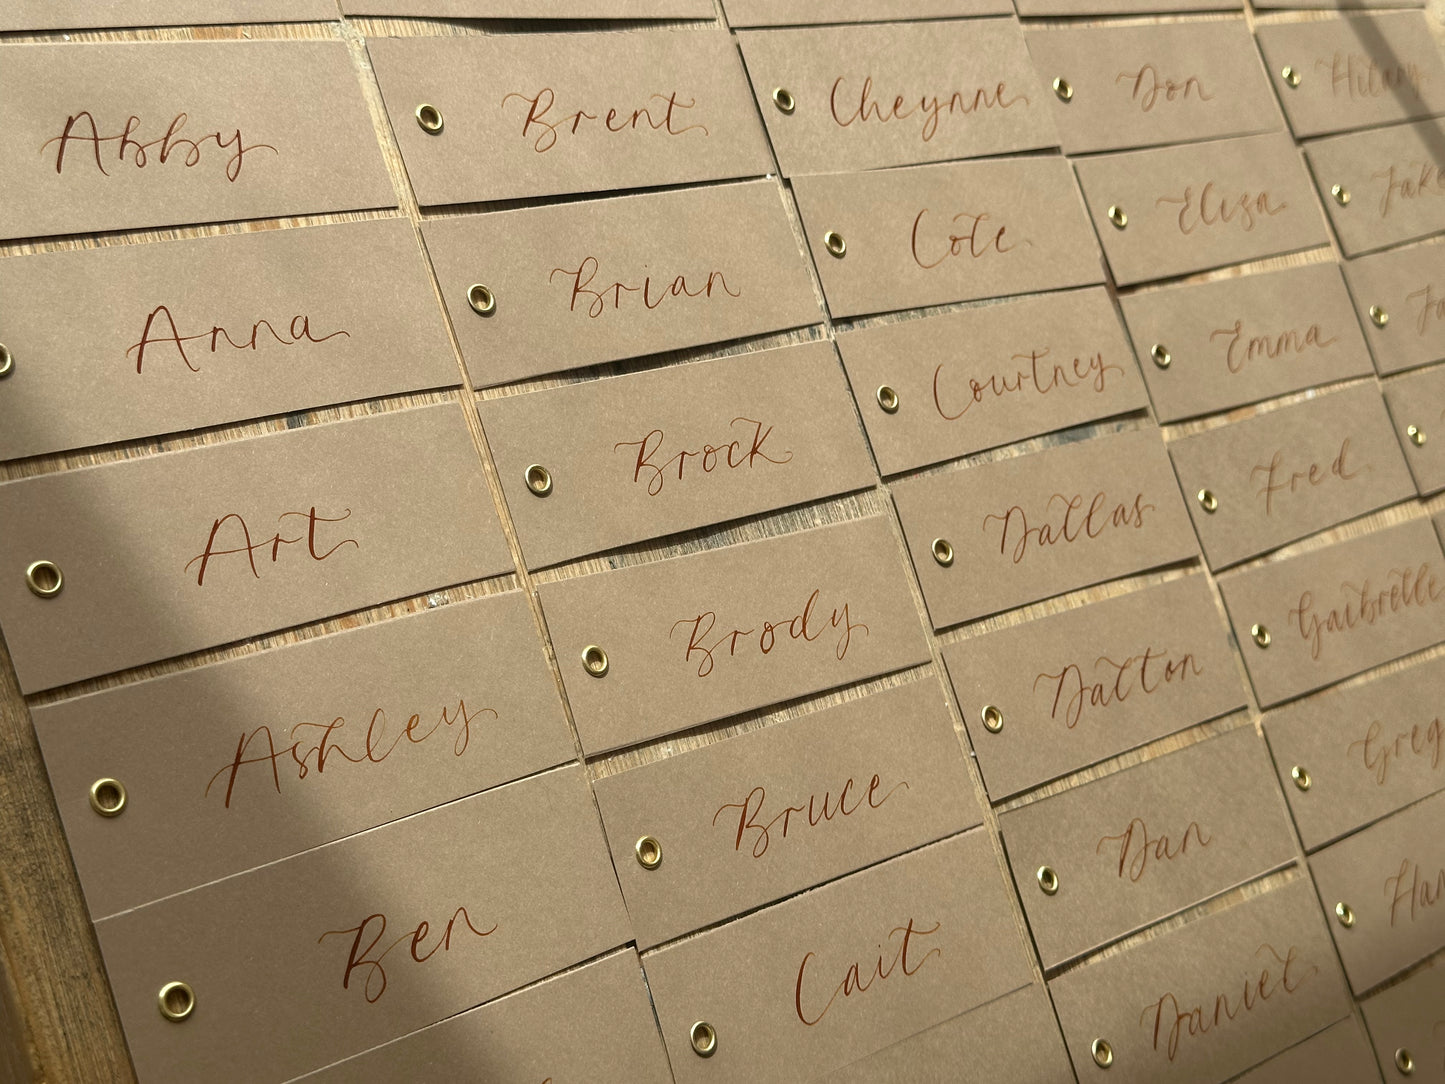 Abby
Anna
Art
Ashley
Ben
Brent
Brian
Brock
Brody
Bruce
Cait
Cheynne
Cole
Courtney
Dallas
Dalton
Dan
Daniel
Don
Eliza
Emma
Fred
Gaibrelle
Greg
Hilary
Jake